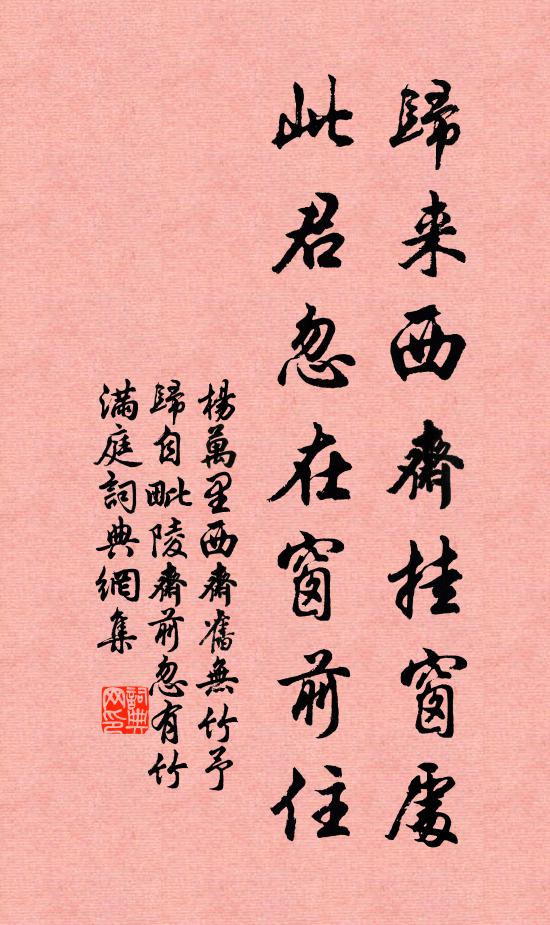 歸来西齋挂窗處
此君忽在窗前住
楊萬里西齋舊無竹予
歸自毗陵齋前忽有竹
滿庭詞典網集
詞典
网印